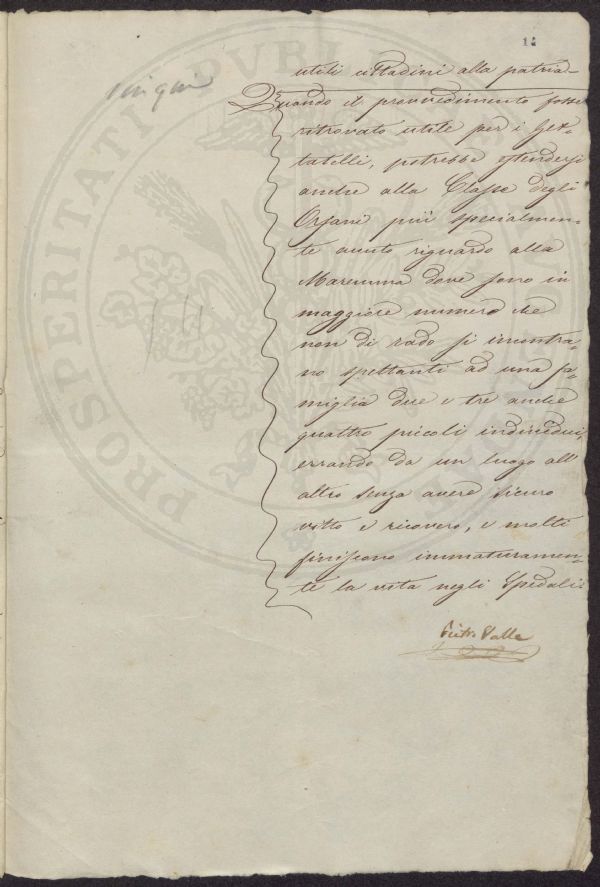 14
utili cittadini alla patria.
Quando il provvedimento fosse
ritrovato utile per i Get-
tatelli, potrebbe estendersi
anche alla Classe degli
Orfani più specialmen-
te avuto riguardo alla
Maremma dove sono in
maggiore numero che
non di rado si incontra-
no spettanti ad una fa-
miglia due e tre anche
quattro piccoli individui,
errando da un luogo all'
altro senza avere sicuro
vitto e ricovero, e molti
finiscono immaturamen-
te la vita negli Spedali.
Valle
PROSPERITATI PUBLI